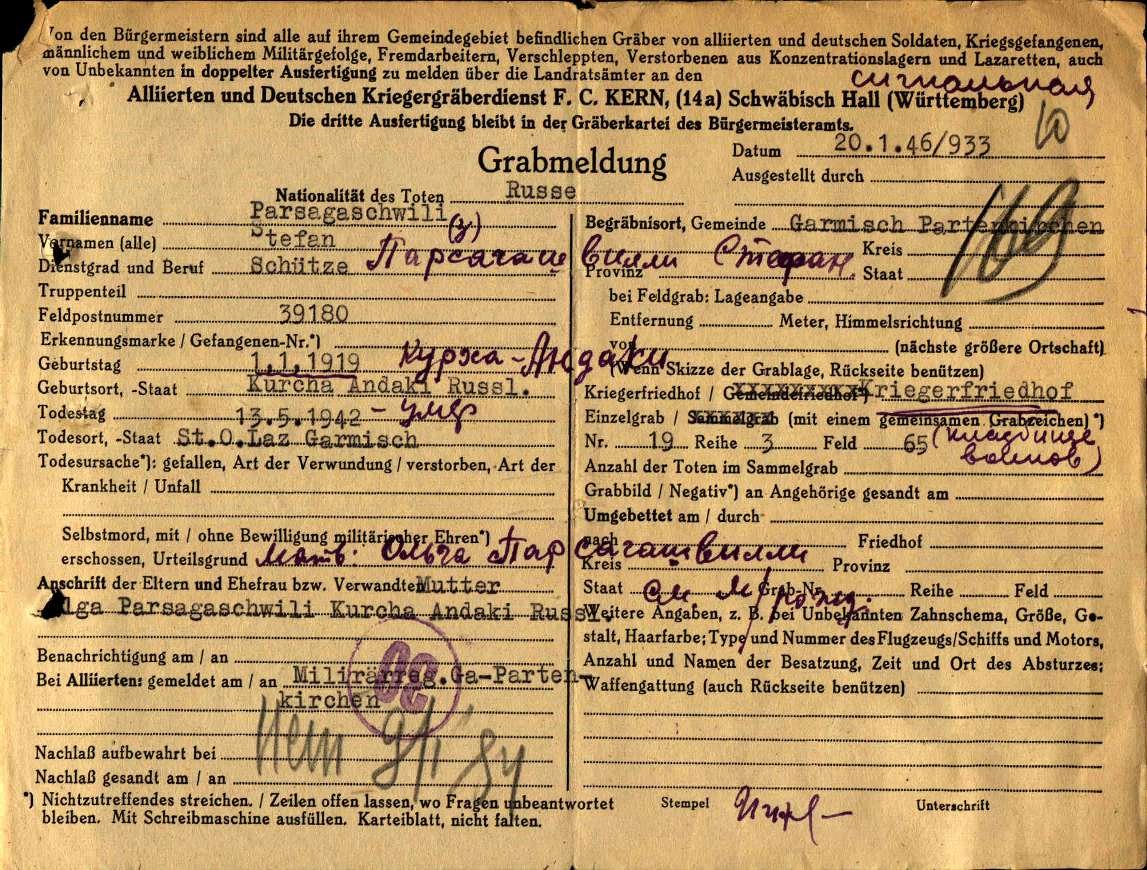 Von den Bürgermeistern sind alle auf ihrem Gemeindegebiet befindlichen Gräber von alliierten und deutschen Soldaten, Kriegsgefangenen,
männlichem und weiblichem Militärgefolge, Fremdarbeitern, Verschleppten, Verstorbenen aus Konzentrationslagern und Lazaretten, auch
von Unbekannten in doppelter Ausfertigung zu melden über die Landratsämter an den
сигнальная
Alliierten und Deutschen Kriegergräberdienst F. C. KERN, (14a) Schwäbisch Hall (Württemberg)
Die dritte Ausfertigung bleibt in der Gräberkartei des Bürgermeisteramts.
10
Grabmeldung
Datum 20.1.46/933
Ausgestellt durch
Nationalität des Toten Russe
Familienname Parsagaschwili
(з)
Vornamen (alle) Stefan
Dienstgrad und Beruf Schütze
Парсагашвилли Стефан
Truppenteil
Feldpostnummer 39180
Erkennungsmarke / Gefangenen-Nr.*)
Geburtstag 1.1.1919 Курха-Андаки
Geburtsort, -Staat Kurcha Andaki Russl.
Todestag 13.5.1942 - умер
Todesort, -Staat St.O.Laz Garmisch
Todesursache*): gefallen, Art der Verwundung / verstorben, Art der
Krankheit / Unfall
Selbstmord, mit / ohne Bewilligung militärischer Ehren*)
erschossen, Urteilsgrund
Мать: Ольга Парсагашвилли
Anschrift der Eltern und Ehefrau bzw. Verwandten Mutter
Olga Parsagaschwili Kurcha Andaki Russl.
Benachrichtigung am / an
Bei Alliierten: gemeldet am / an Milirärreg.Ga-Parten-
kirchen
Nachlaß aufbewahrt bei
Nachlaß gesandt am / an
*) Nichtzutreffendes streichen. / Zeilen offen lassen, wo Fragen unbeantwortet
bleiben. Mit Schreibmaschine ausfüllen. Karteiblatt, nicht falten.
Begräbnisort, Gemeinde Garmisch Partenkirchen
Kreis
Provinz Staat
bei Feldgrab: Lageangabe
Entfernung Meter, Himmelsrichtung
von (nächste größere Ortschaft)
(Wenn Skizze der Grablage, Rückseite benützen)
Kriegerfriedhof / Gemeindefriedhof*) xxxxxxxxx Kriegerfriedhof
Einzelgrab / Sammelgrab (mit einem gemeinsamen Grabzeichen)*)
Nr. 19 Reihe 3 Feld 65 (кладбище
воинов)
Anzahl der Toten im Sammelgrab
Grabbild / Negativ*) an Angehörige gesandt am
Umgebettet am / durch
nach Friedhof
Kreis Provinz
Staat Grab-Nr. Reihe Feld
см м/рожд.
Weitere Angaben, z. B. bei Unbekannten Zahnschema, Größe, Ge-
stalt, Haarfarbe; Type und Nummer des Flugzeugs/Schiffs und Motors,
Anzahl und Namen der Besatzung, Zeit und Ort des Absturzes;
Waffengattung (auch Rückseite benützen)
Stempel Unterschrift